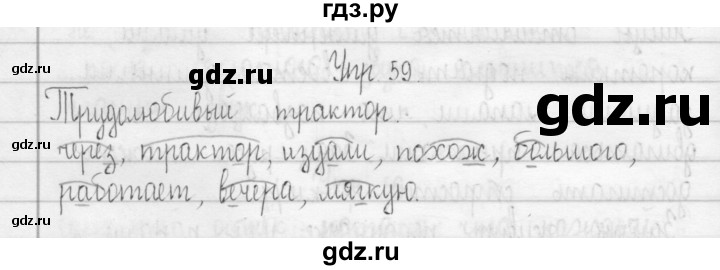 гдз.ру
gdz.ru
gdz.ru
gdz.ru
Упр 59
Трудолюбивый трактор.
gdz.ru
через, трактор, издали, похож, большого,
работает, вечера, мягкую.
gdz.ru
gdz.ru
gdz.ru